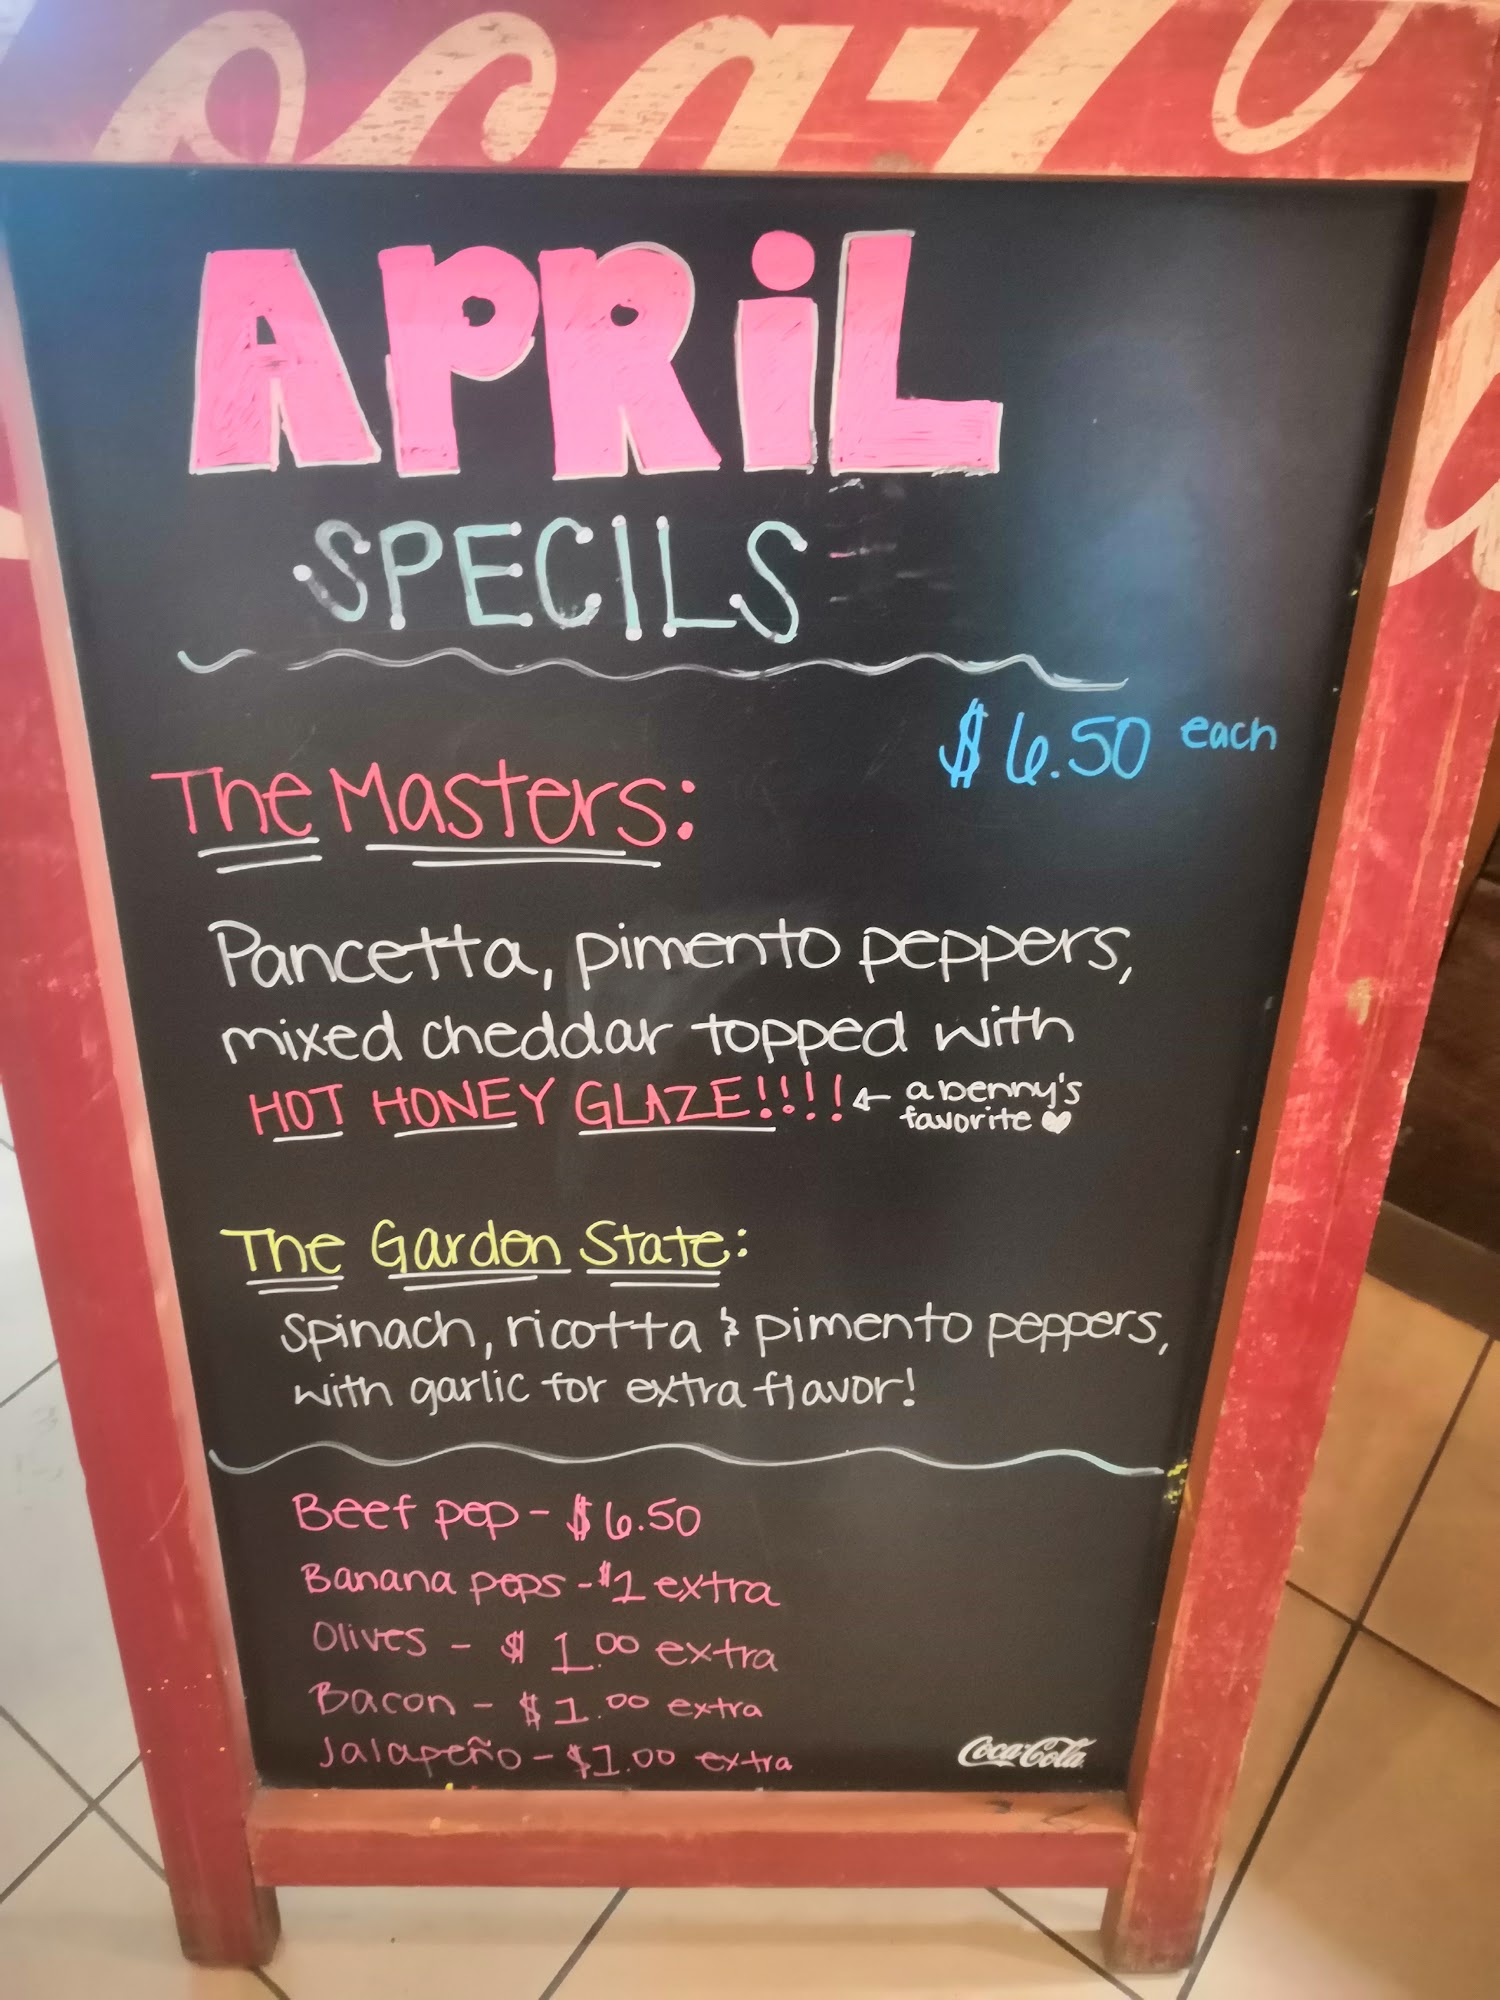 APRIL
SPECILS
$6.50 each
The Masters:
Pancetta, pimento peppers,
mixed cheddar topped with
HOT HONEY GLAZE!!!! ← a benny's
favorite ♥
The Garden State:
Spinach, ricotta & pimento peppers,
with garlic for extra flavor!
Beef pep - $6.50
Banana peps - $1 extra
Olives - $1.00 extra
Bacon - $1.00 extra
Jalapeño - $1.00 extra
Coca-Cola